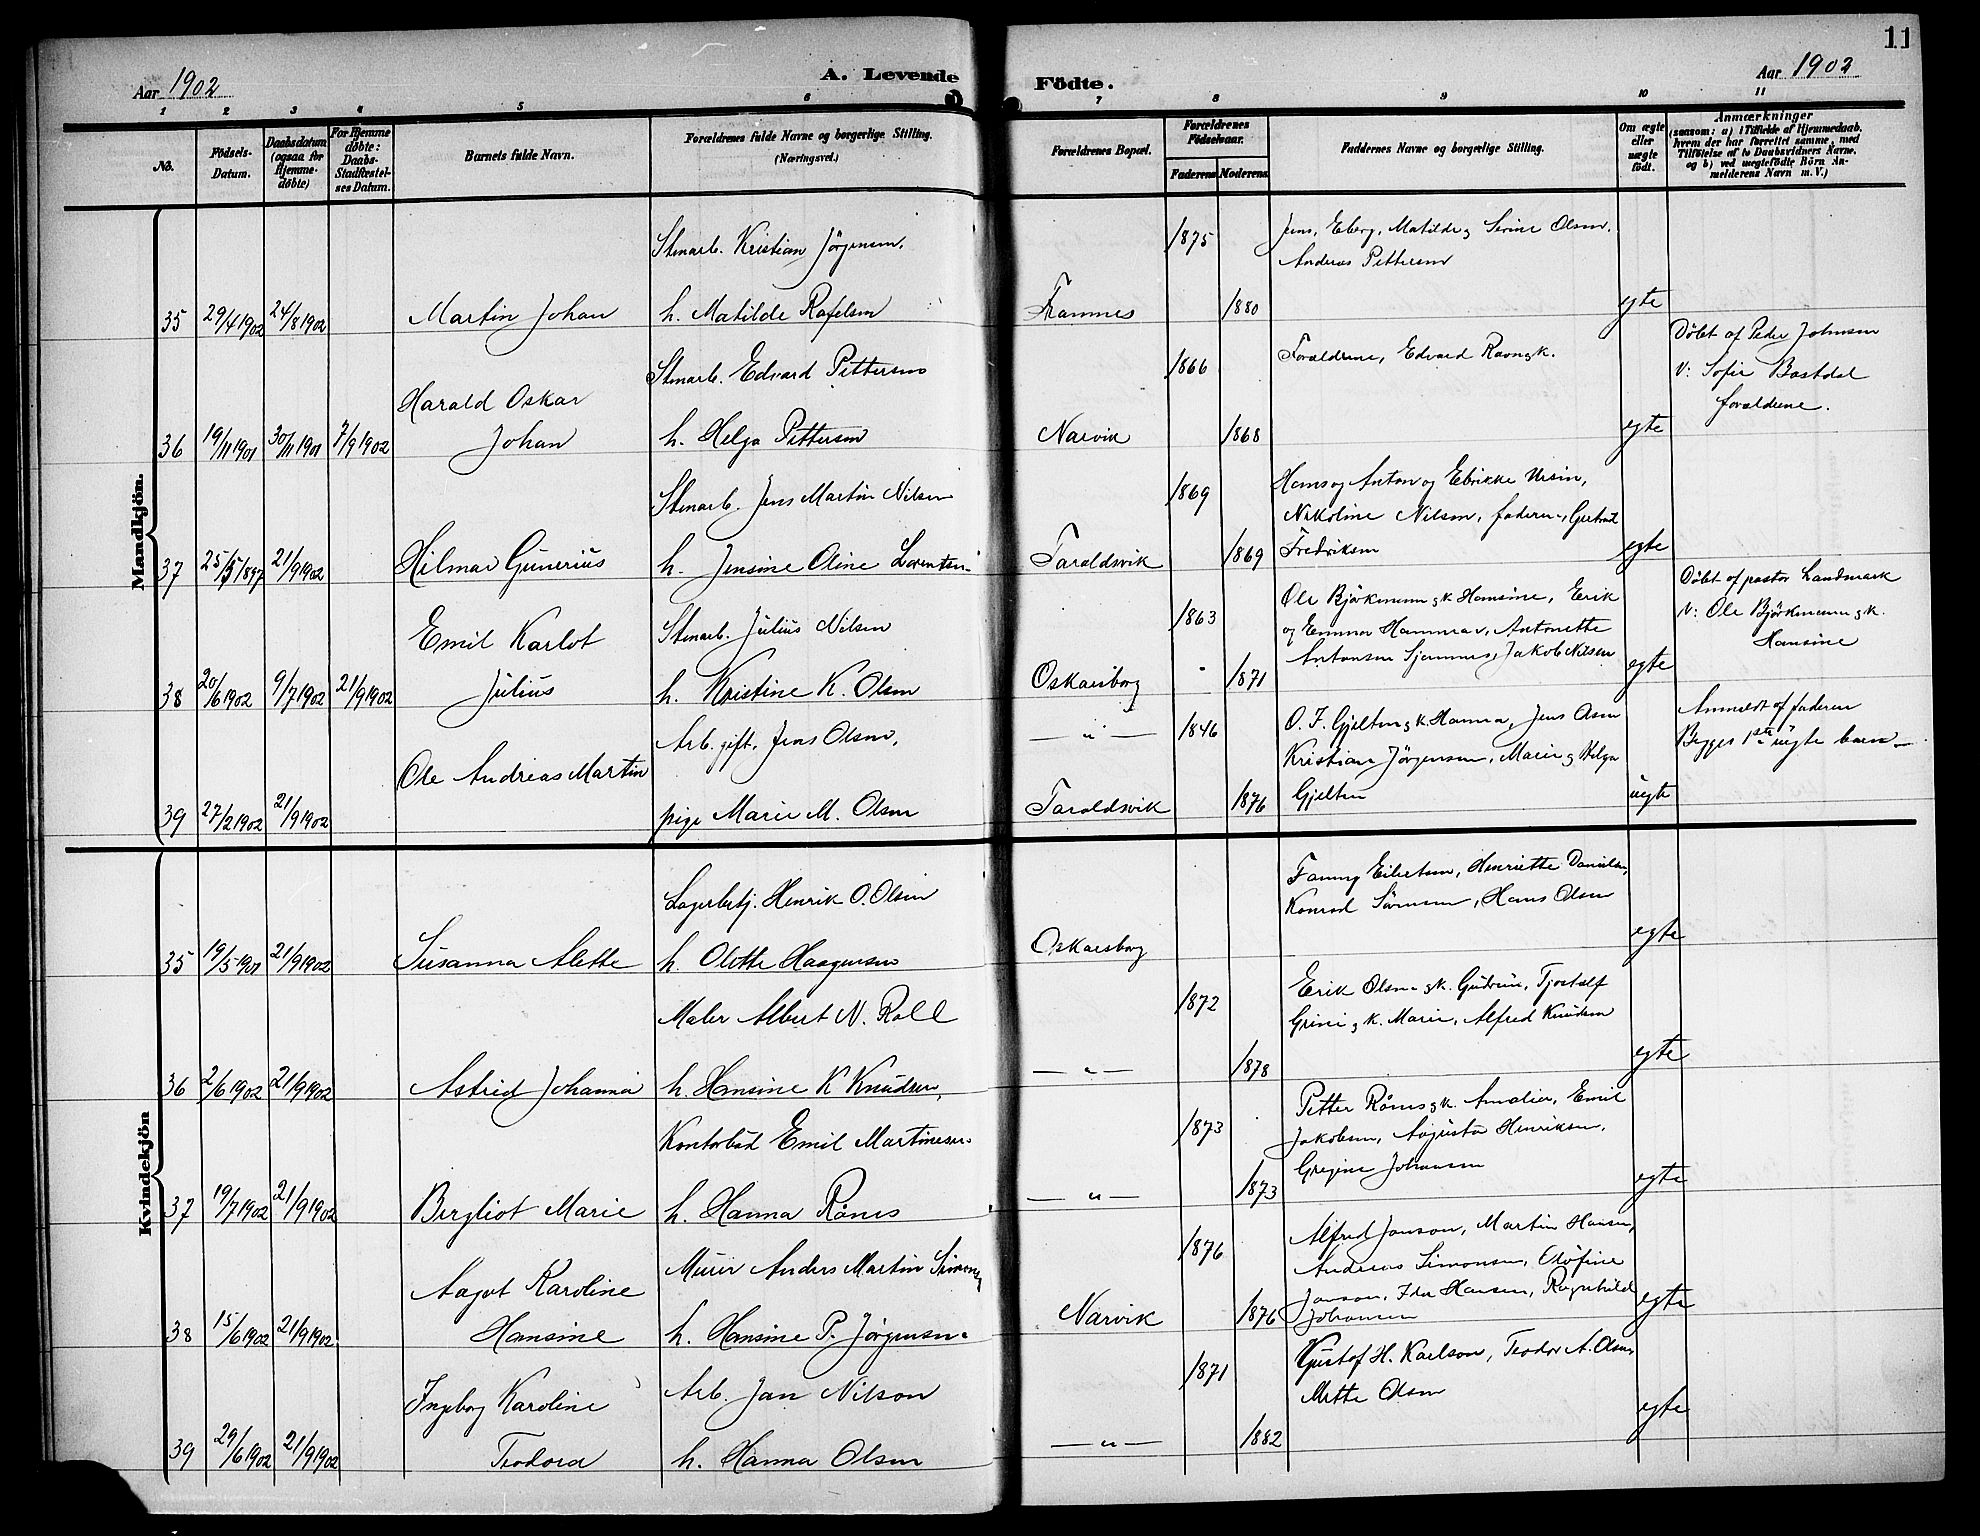 11
Aar 1902
A. Levende Födte.
Aar 1902
1 2 3 4 5 6 7 8 9 10 11
No.
Födsels-Datum.
Daabsdatum (ogsaa for Hjemme-döbte)
For Hjemme döbte: Daabs-Stadfæstel-ses Datum.
Barnets fulde Navn.
Forældrenes fulde Navne og borgerlige Stilling. (Næringsvei.)
Forældrenes Bopæl.
Forældrenes Födselsaar.
Faderens Moderens
Faddernes Navne og borgerlige Stilling.
Om ægte eller uægte födt.
Anmærkninger
(saasom: a) i Tilfælde af Hjemmedaab,
hvem der har forrettet samme, med
Tilföielse af to Daabsvidners Navne,
og b) ved uægtefödte Börn An-
melderens Navn m. V.)
Mandkjön.
Stenarb. Kristian Jörgensen.
1875
Jens, Eberg, Matilde og Serine Olsen.
Anderas Pettersen
35 29/4 1902 24/8 1902 Martin Johan h. Matilde Rafelsen
Framnes 1880 egte
Stenarb. Edvard Pettersen
1866
Forældrene, Edvard Ravn g k.
Döbt af Peder Johnsen
v: Sofie Bostdal
forældrene.
Harald Oskar
36 19/11 1901 30/11 1901 7/9 1902 Johan h. Helga Pettersen
Narvik 1868 egte
Stenarb. Jens Martin Nilsen
1869
Hans og Anton og Ebrikke Ursin,
Nikoline Nilsen, faderen, Gertrud
Fredriksen
37 25/5 1897 21/9 1902 Hilmar Gunerius h. Jensine Oline Lorentsen
Taraldsvik 1869 egte
Emil Karlot
Stenarb. Julius Nilsen
1863
Ole Björkmann g k Hansine, Erik
og Emma Hammar, Antonette
Antonsen Sjemmes, Jakob Nilsen
Döbt af pastor Landmark
v: Ole Björkmann g k.
Hansine
38 20/6 1902 9/7 1902 21/9 1902 Julius h. Kristine K. Olsen
Oskarsborg 1871 egte
Arb. gift, Jens Olsen,
— " — 1846
O. F. Gjelten g k. Hanna, Jens Olsen
Kristian Jörgensen, Marie og Helga
Gjelten
Anmeldt af faderen
Begges 1ste uegte barn
Ole Andreas Martin
39 27/2 1902 21/9 1902 pige Marie M. Olsen
Taraldsvik 1876 uegte
Kvindekjön
Lagerbetj. Henrik O. Olsen
Fanny Eilertsen, Henriette Danielsen,
Konrad Sörensen, Hans Olsen
35 19/5 1901 21/9 1902 Susanna Alette h. Olette Haagensen
Oskarsborg egte
Maler Albert N. Roll
1872
Erik Olsen g k. Gudrun, Tjostolf
Grini g k. Marie, Alfred Knudsen
36 2/6 1902 21/9 1902 Astrid Johanna h. Hansine K Knudsen,
— " — 1878 egte
Kontorbud Emil Martinesen.
1873
Petter Rönes g k. Amalie, Emil
Jakobsen, Augusta Henriksen,
Gregine Johansen
37 19/7 1902 21/9 1902 Bergliot Marie h. Hanna Rönes
— " — 1873 egte
Aagot Karoline
Murer Anders Martin Simonsen
1876
Alfred Janson, Martin Hansen,
Andreas Simonsen, Olöfine
Janson, Ida Hansen, Ragnhild
Johansen
38 15/6 1902 21/9 1902. Hansine h. Hansine P. Jörgensen.
Narvik 1876 egte
Ingeborg Karoline
Arb. Jan Nilson
1871
Gustof H. Karlson, Teodor A. Olsen,
Mette Olsen
39 29/6 1902 21/9 1902 Teodora h. Hanna Olsen
— " — 1882 egte